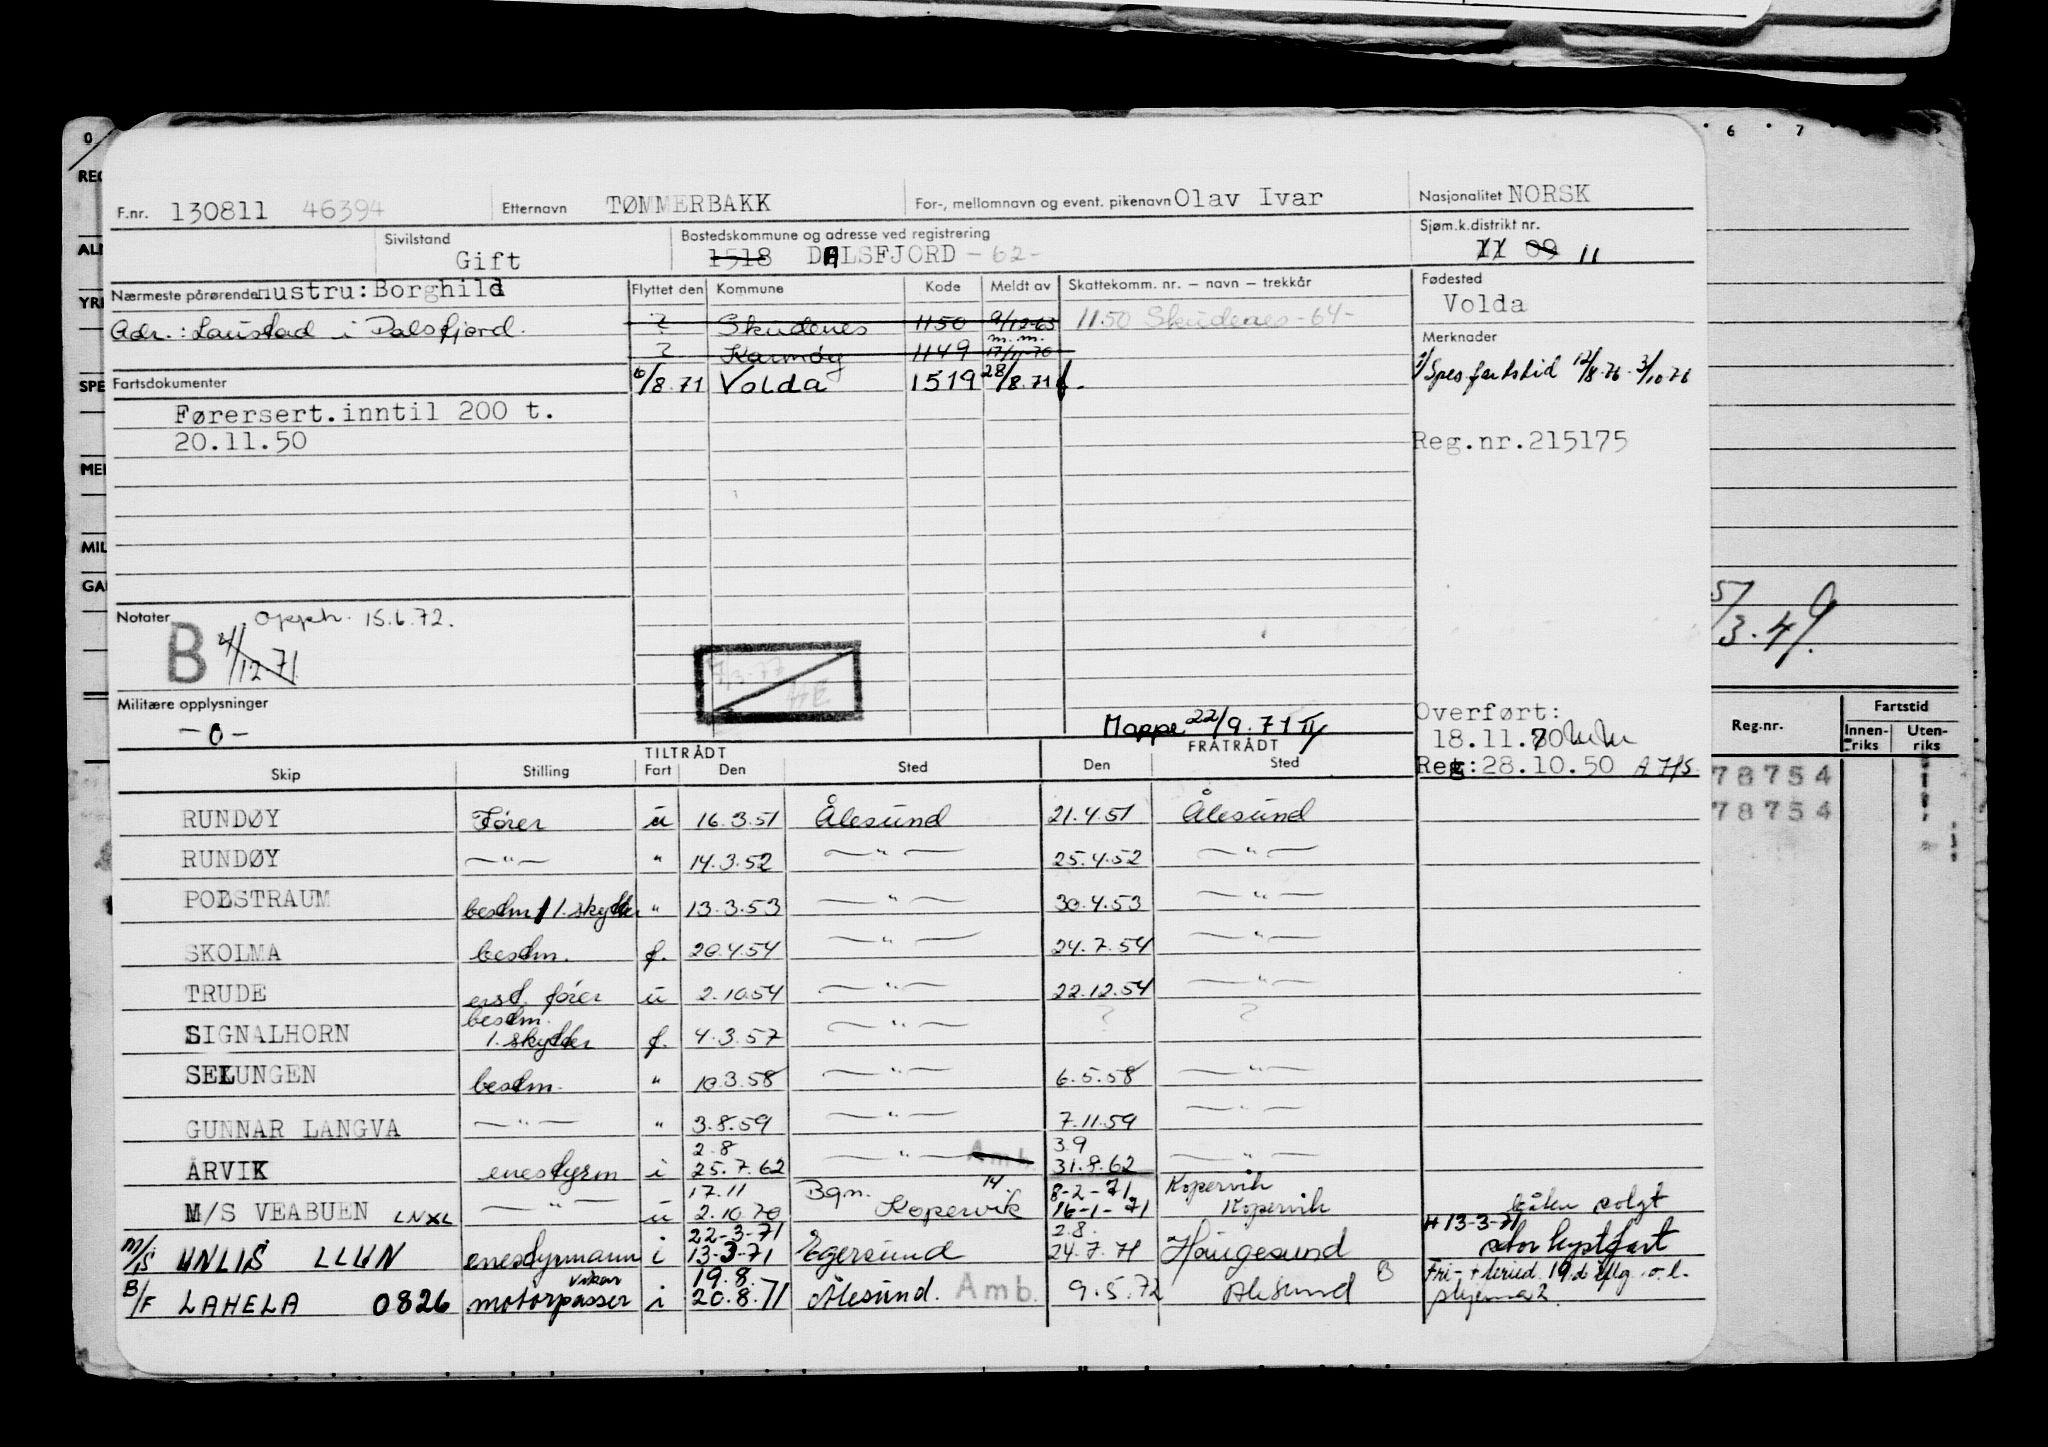 0 6 7
F.nr. 130811 46394 Etternavn TØMMERBAKK For-, mellomnavn og event. pikenavn Olav Ivar Nasjonalitet NORSK
Sivilstand Gift Bostedskommune og adresse ved registrering 1518 DALSFJORD -62- Sjøm.k.distrikt nr. 11 09 11
Nærmeste pårørende Hustru: Borghild Flyttet den Kommune Kode Meldt av Skattekomm. nr. – navn – trekkår Fødested Volda
Adr.: Laustad i Dalsfjord. ? Skudenes 1150 9/12-63 1150 Skudenes -64-
Merknader
? Karmøy 1149 m.m. 17/11-70
Spes fartstid 12/8-76 - 3/10 76
Fartsdokumenter 6/8.71 Volda 1519 28/8.71
Førersert.inntil 200 t.
20.11.50
Reg.nr.215175
Notater Opph. 15.6.72.
B 4/12-71
5/3.49.
7/3-77
Militære opplysninger
-0-
Mappe 22/9.71
Overført:
18.11.70
Reg:28.10.50
Reg.nr. Fartstid
Innen-riks Uten-riks
TILTRÅDT FRATRÅDT
Skip Stilling Fart Den Sted Den Sted
78754
78754
RUNDØY Fører u 16.3.51 Ålesund 21.4.51 Ålesund
RUNDØY —"— " 14.3.52 —"— 25.4.52 —"—
POLSTRAUM bestm/1.skytter " 13.3.53 —"— 30.4.53 —"—
SKOLMA bestm. f. 20.4.54 —"— 24.7.54 —"—
TRUDE erst. fører u 2.10.54 —"— 22.12.54 —"—
SIGNALHORN bestm. 1. skytter f. 4.3.57 —"— ? ?
SELUNGEN bestm. " 10.3.58 —"— 6.5.58 —"—
GUNNAR LANGVA —"— " 3.8.59 —"— 7.11.59 —"—
2.8 3.9
ÅRVIK enestyrm i 25.7.62 —"— Amb. 31.8.62 —"—
17.11 Bgn. 14 8-2-71 Kopervik
M/S VEABUEN LNXL —"— u 2.10.70 Kopervik 16-1-71 Kopervik båten solgt
22-3-71 2.8. H 13-3-71
M/S UNLIS LLUN enestyrmann i 13-3-71 Egersund 24.7.71 Haugesund stor kystfart
vikar 19.8.
B/F LAHELA 0826 motorpasser i 20.8.71 Ålesund. Amb. 9.5.72 Ålesund B
skjema 2.